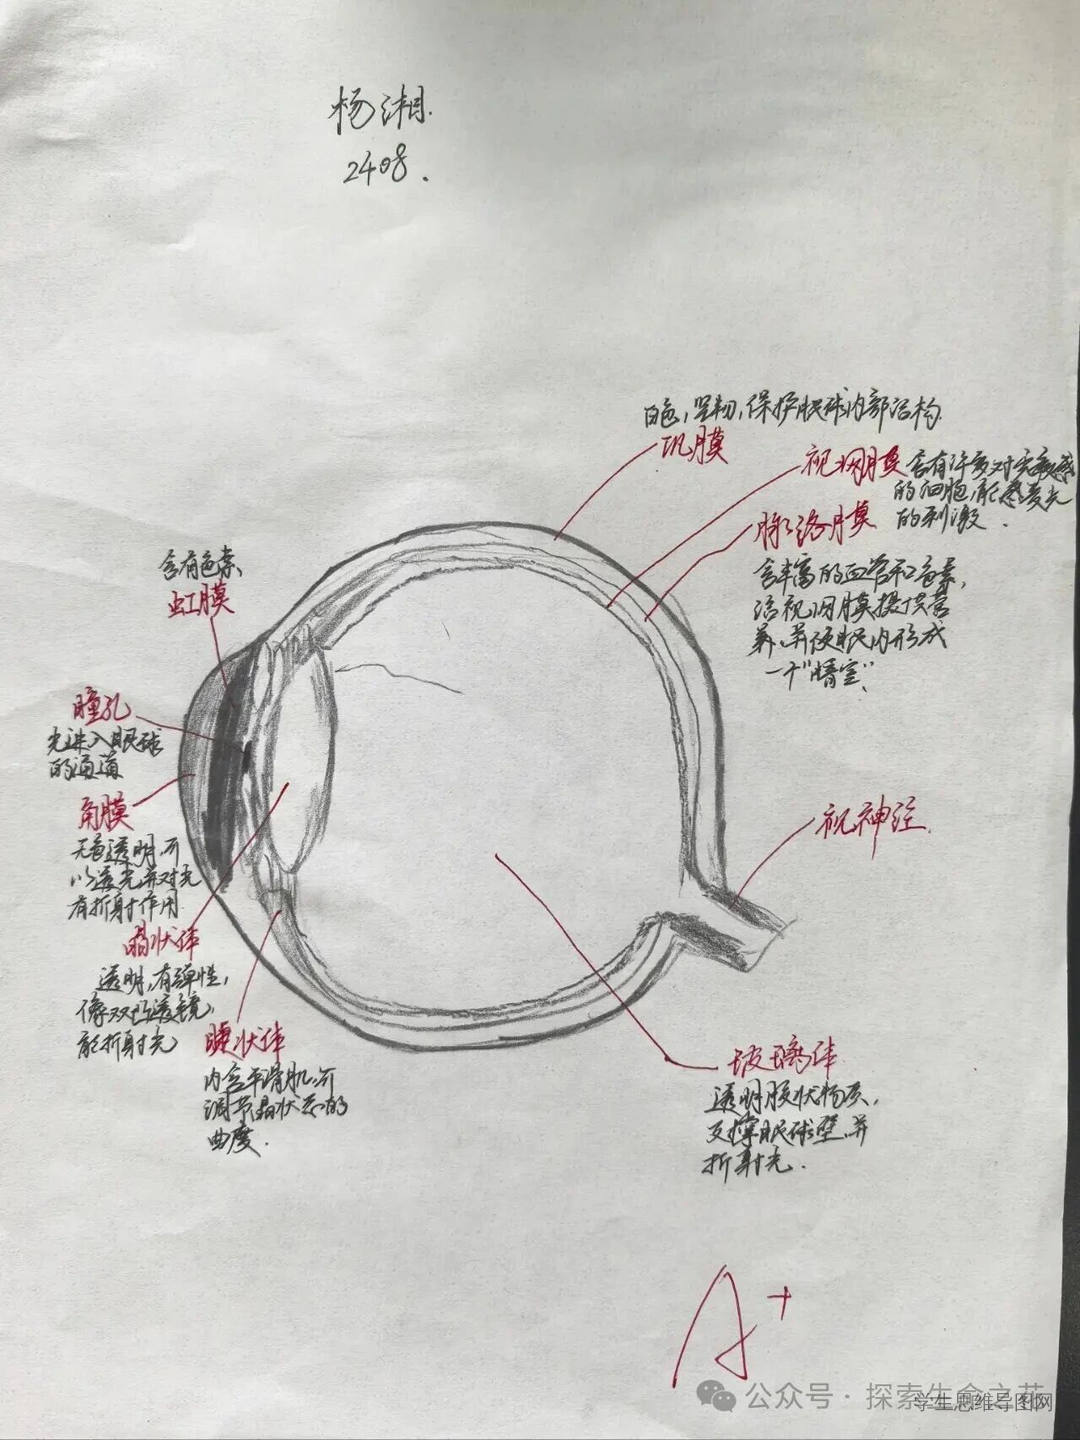 杨湘
2408.
白色,坚韧,保护眼球内部结构
巩膜
视网膜
含有许多对光敏感
的细胞,能感受光
的刺激.
脉络膜
含丰富的血管和色素,
给视网膜提供营
养,并使眼内形成
一个"暗室".
含有色素
虹膜
瞳孔
光进入眼球
的通道
角膜
无色透明,可
以透光并对光
有折射作用
晶状体
透明,有弹性,
像双凸透镜,
能折射光
睫状体
内含平滑肌,可
调节晶状态的
曲度.
视神经
玻璃体
透明胶状物质,
支撑眼球壁,并
折射光.
A+
公众号·探索生命之花
学生思维导图网